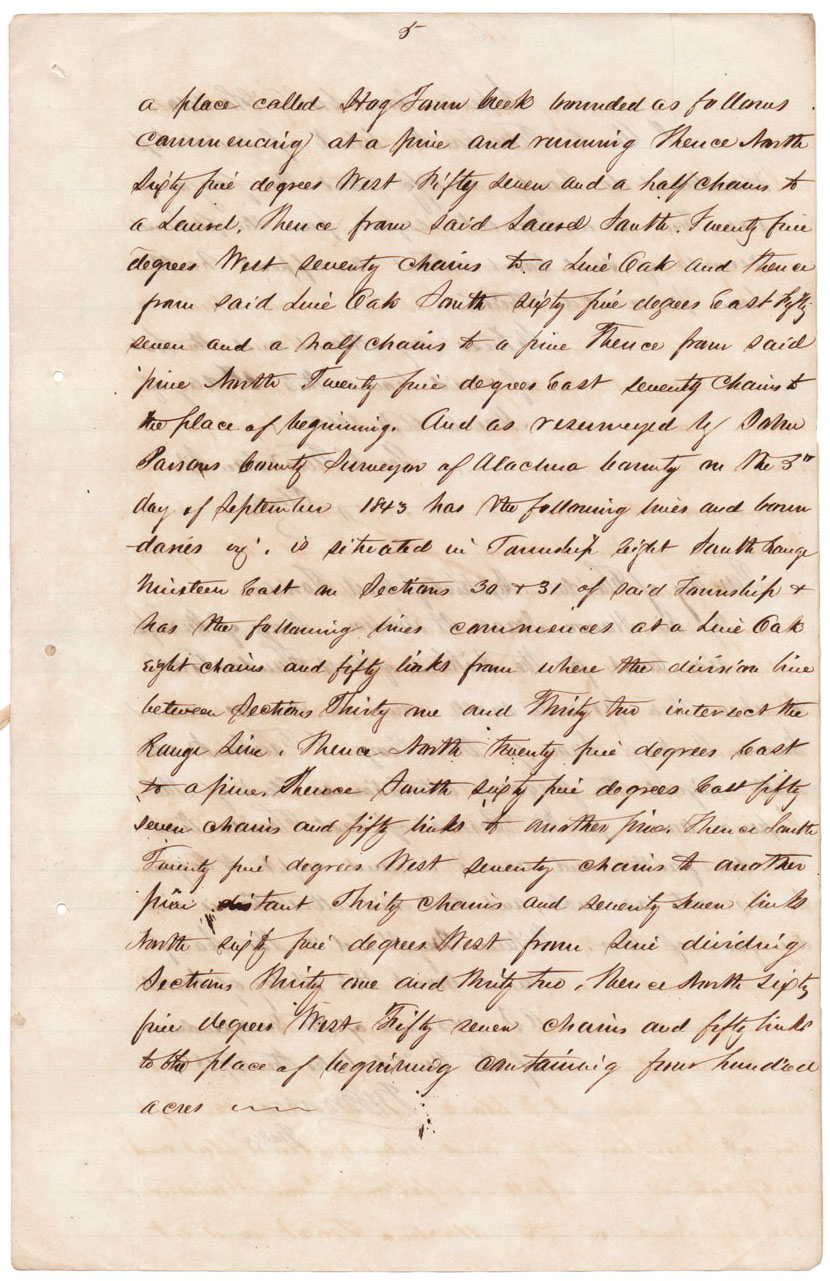 5
a place called Hog Town Creek bounded as follows
commencing at a pine and running Thence North
Sixty five degrees West Fifty seven and a half chains to
a Laurel, Thence from said Laurel South. Twenty five
degrees West seventy chains to a Live Oak and thence
from said Live Oak South sixty five degrees East fifty
seven and a half chains to a pine Thence from said
pine North Twenty five degrees East seventy chains to
the place of beginning. And as resurveyed by John
Parsons County Surveyor of Alachua County on the 3rd
day of September 1843 has the following lines and boun
daries viz. is situated in Township Eight South Range
Nineteen East on Sections 30 & 31 of said Township &
has the following lines commences at a Live Oak
eight chains and fifty links from where the division line
between Sections Thirty one and Thirty two intersect the
Range Line, Thence North twenty five degrees East
to a pine, Thence South sixty five degrees East fifty
seven chains and fifty links to another pine. Thence South
Twenty five degrees West seventy chains to another
pine distant Thirty chains and seventy seven links
North sixty five degrees West from Line dividing
Sections Thirty one and Thirty two, Thence North sixty
five degrees West Fifty seven chains and fifty links
to the place of beginning containing four hundred
acres